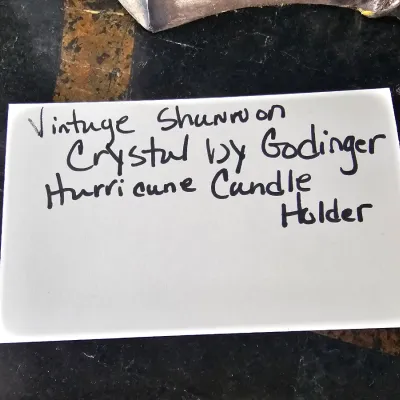 Vintage Shannon
Crystal by Godinger
Hurricane Candle
Holder